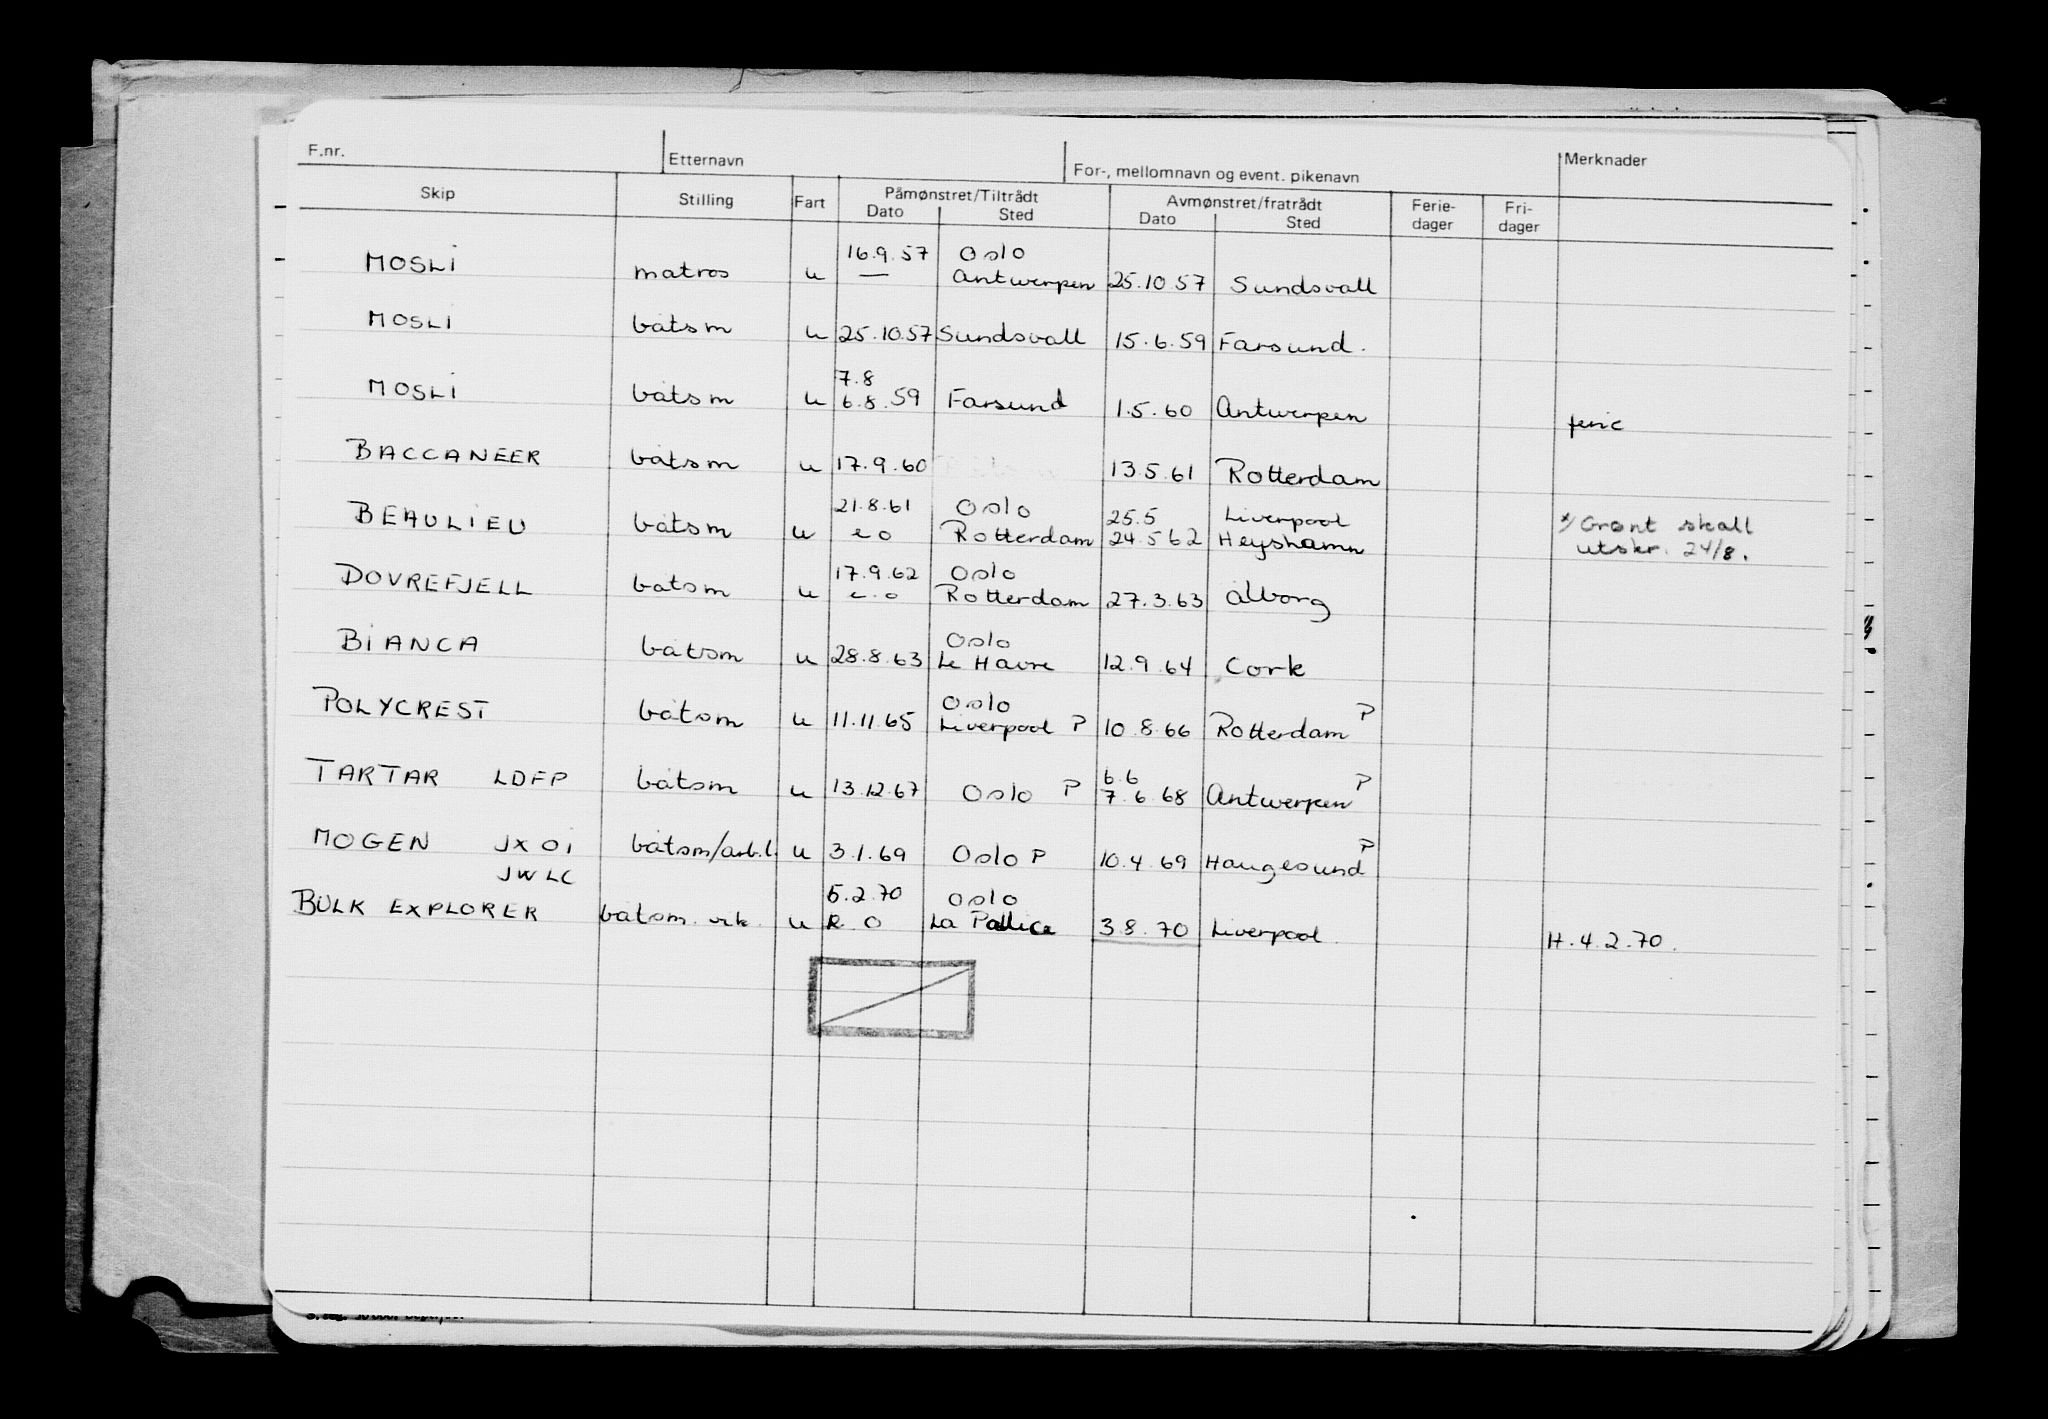 F.nr. Etternavn For-, mellomnavn og event. pikenavn Merknader
Skip Stilling Fart Påmønstret/Tiltrådt Avmønstret/fratrådt Ferie- Fri-
Dato Sted Dato Sted dager dager
16.9.57 Oslo
MOSLI matros u — Antwerpen 25.10.57 Sundsvall
MOSLI båtsm u 25.10.57 Sundsvall 15.6.59 Farsund.
7.8
MOSLI båtsm u 6.8.59 Farsund 1.5.60 Antwerpen ferie
BACCANEER båtsm u 17.9.60 13.5.61 Rotterdam
21.8.61 Oslo 25.5 Liverpool x/ Grønt skall
BEAULIEU båtsm u e o Rotterdam 24.5.62 Heyshamn utskr. 24/8.
17.9.62 Oslo
DOVREFJELL båtsm u e.o Rotterdam 27.3.63 Ålborg
Oslo
BIANCA båtsm u 28.8.63 Le Havre 12.9.64 Cork
Oslo
POLYCREST båtsm u 11.11.65 Liverpool P 10.8.66 Rotterdam P
6.6
TARTAR LDFP båtsm u 13.12.67 Oslo P 7.6.68 Antwerpen P
MOGEN JXOI båtsm/arb.l. u 3.1.69 Oslo P 10.4.69 Haugesund P
JWLC
5.2.70 Oslo
BULK EXPLORER båtsm. vik. u R. O La Pallice 3.8.70 Liverpool. H.4.2.70.